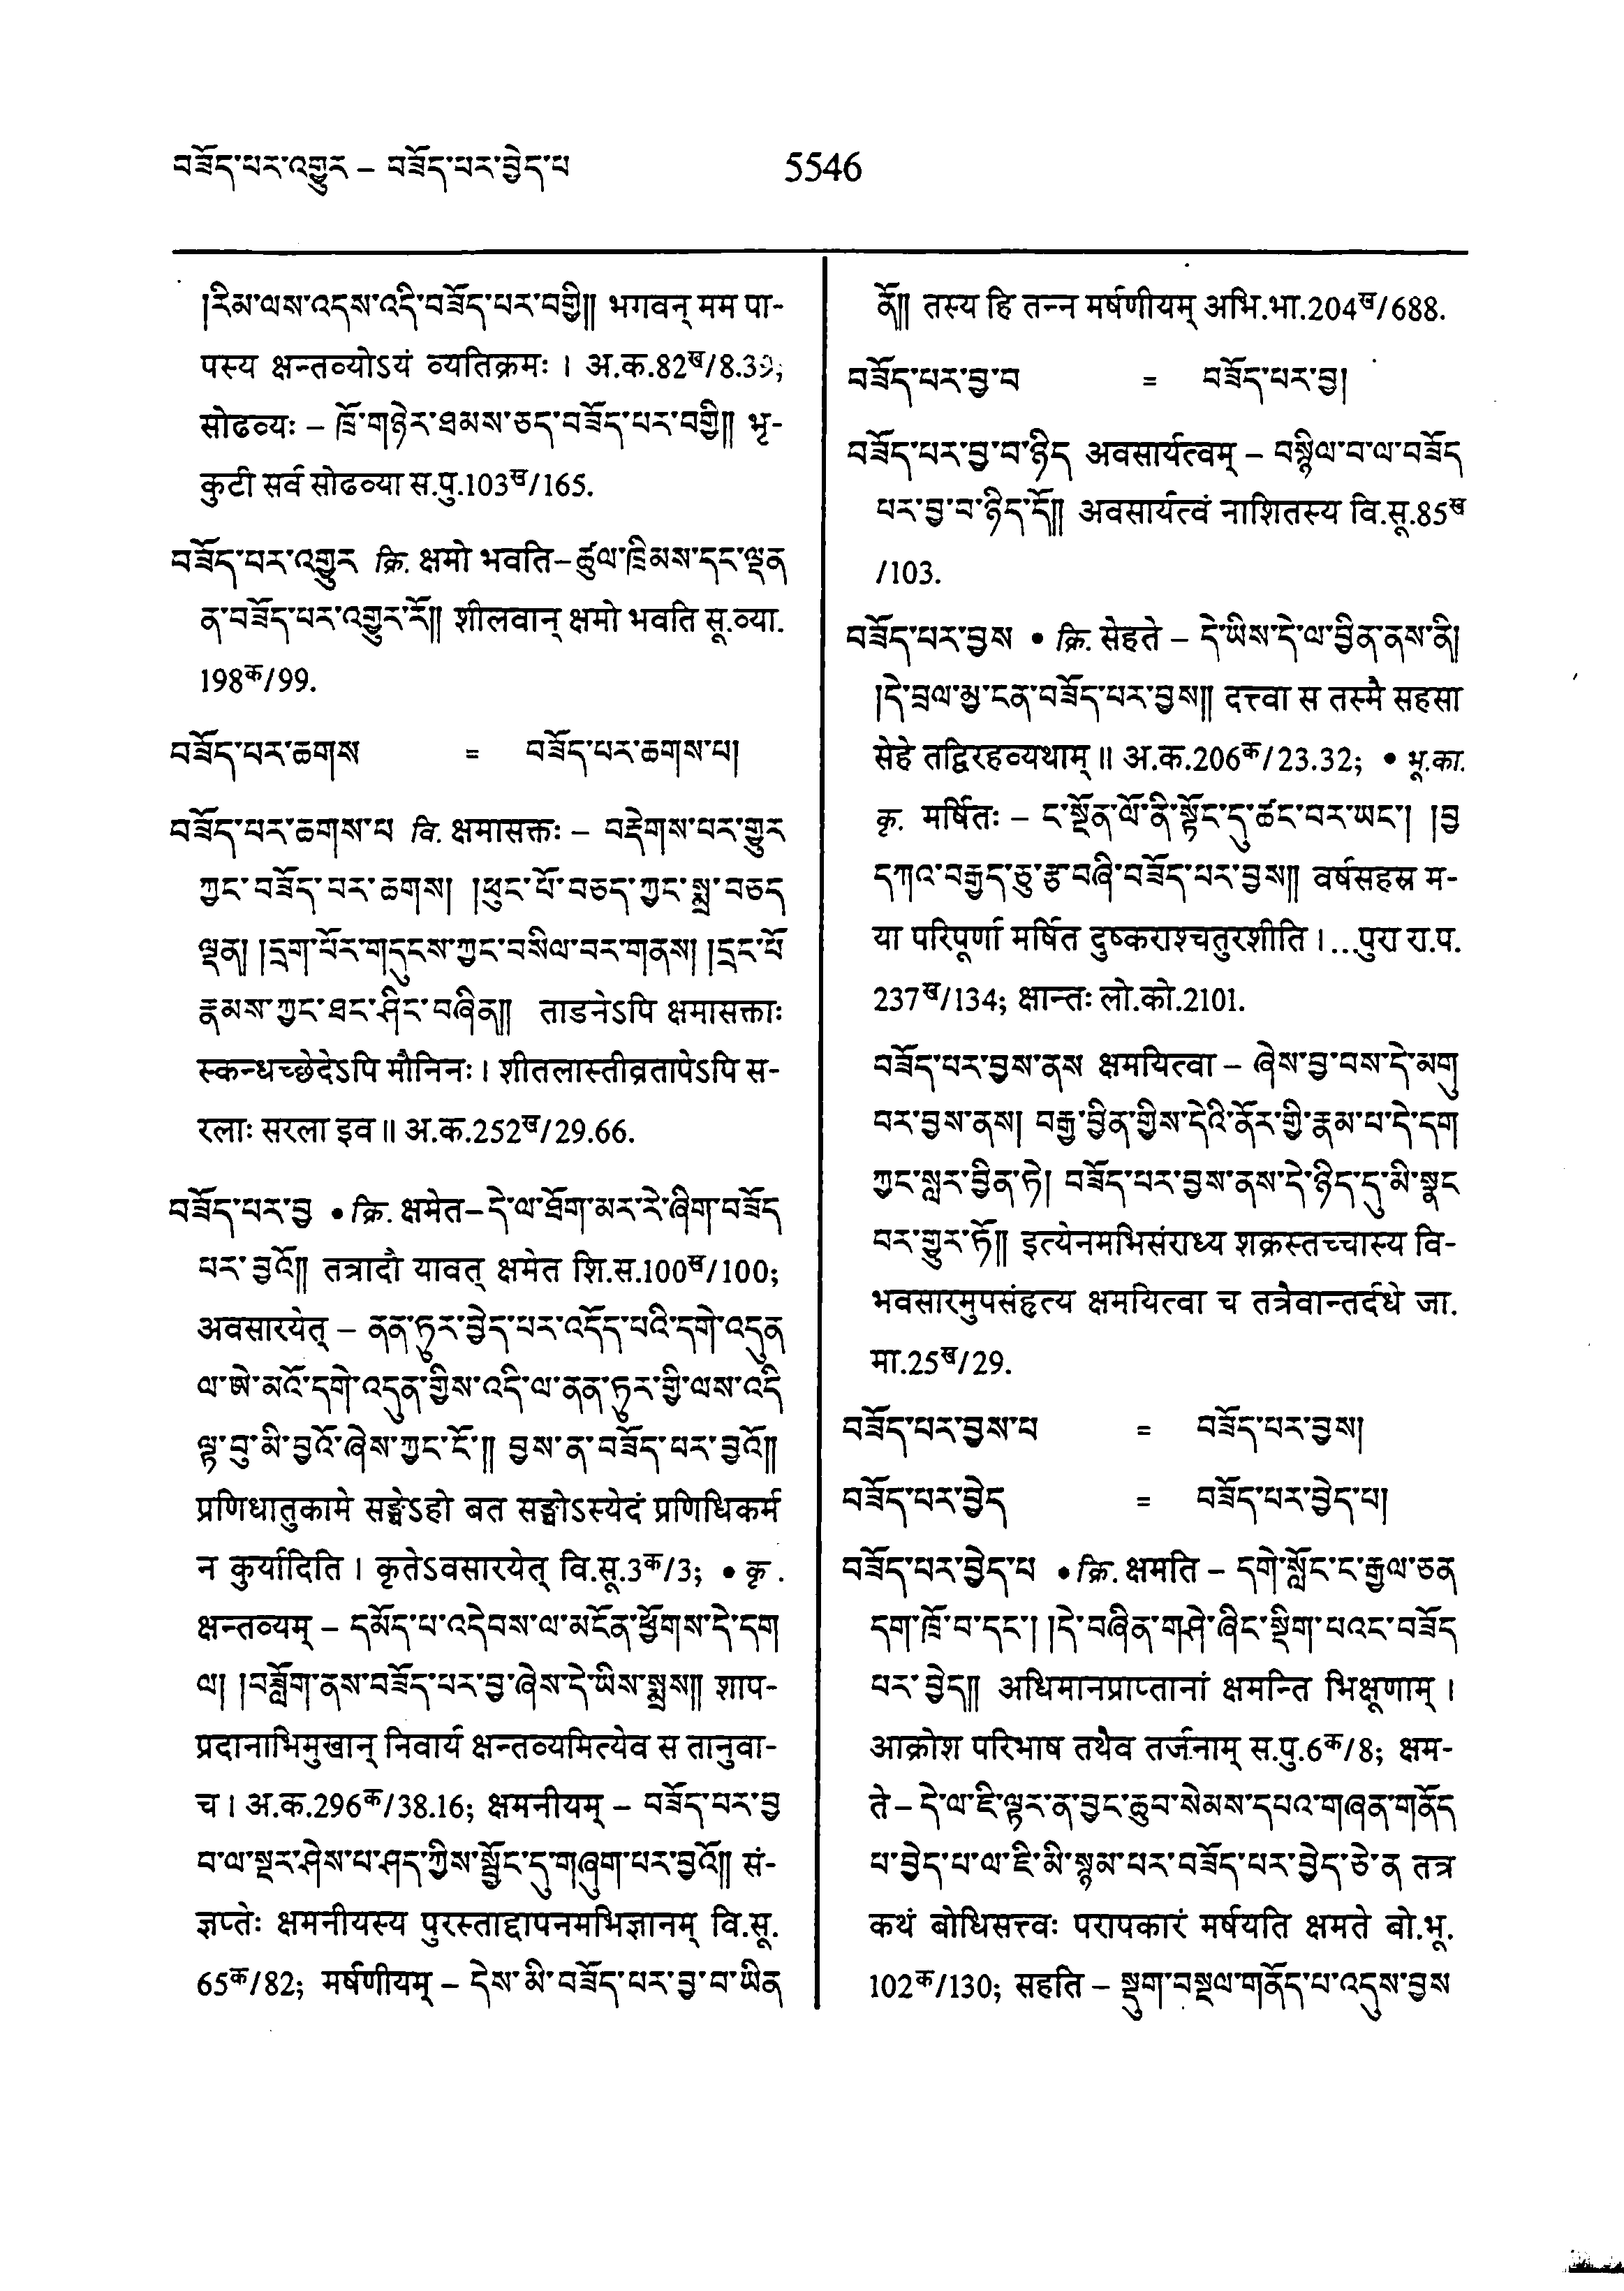 བཟོད་པར་འགྱུར – བཟོད་པར་བྱེད་པ
5546
།རིམ་ལས་འདས་འདི་བཟོད་པར་བགྱི༎ भगवन् मम पा-
पस्य क्षन्तव्योऽयं व्यतिक्रमः । अ.क.82ख/8.39;
सोढव्यः – ཁྲོ་གཉེར་ཐམས་ཅད་བཟོད་པར་བགྱི༎ भृ-
कुटी सर्व सोढव्या स.पु.103ख/165.
བཟོད་པར་འགྱུར क्रि. क्षमो भवति–ཚུལ་ཁྲིམས་དང་ལྡན
ན་བཟོད་པར་འགྱུར་རོ༎ शीलवान् क्षमो भवति सू.व्या.
198क/99.
བཟོད་པར་ཆགས = བཟོད་པར་ཆགས་པ།
བཟོད་པར་ཆགས་པ वि. क्षमासक्तः – བརྡེགས་པར་གྱུར
ཀྱང་བཟོད་པར་ཆགས། །ཕུང་པོ་བཅད་ཀྱང་སྨྲ་བཅད
ལྡན། །དྲག་པོར་གདུངས་ཀྱང་བསིལ་བར་གནས། །དྲང་པོ
རྣམས་ཀྱང་ཐང་ཤིང་བཞིན༎ ताडनेऽपि क्षमासक्ताः
स्कन्धच्छेदेऽपि मौनिनः । शीतलास्तीव्रतापेऽपि स-
रलाः सरला इव ॥ अ.क.252ख/29.66.
བཟོད་པར་བྱ • क्रि. क्षमेत–དེ་ལ་ཐོག་མར་རེ་ཞིག་བཟོད
པར་བྱའོ༎ तत्रादौ यावत् क्षमेत शि.स.100ख/100;
अवसारयेत् – ནན་ཏུར་བྱེད་པར་འདོད་པའི་དགེ་འདུན
ལ་ཨེ་མའོ་དགེ་འདུན་གྱིས་འདི་ལ་ནན་ཏུར་གྱི་ལས་འདི
ལྟ་བུ་མི་བྱའོ་ཞེས་ཀྱང་ངོ་༎ བྱས་ན་བཟོད་པར་བྱའོ༎
प्रणिधातुकामे सङ्घेऽहो बत सङ्घोऽस्येदं प्रणिधिकर्म
न कुर्यादिति । कृतेऽवसारयेत् वि.सू.3क/3; • कृ.
क्षन्तव्यम् – དམོད་པ་འདེབས་ལ་མངོན་ཕྱོགས་དེ་དག
ལ། །བཟློག་ནས་བཟོད་པར་བྱ་ཞེས་དེ་ཡིས་སྨྲས༎ शाप-
प्रदानाभिमुखान् निवार्य क्षन्तव्यमित्येव स तानुवा-
च । अ.क.296क/38.16; क्षमनीयम् – བཟོད་པར་བྱ
བ་ལ་སྔར་ཤེས་པ་ཤད་ཀྱིས་སྦྱོང་དུ་གཞུག་པར་བྱའོ༎ सं-
ज्ञप्तेः क्षमनीयस्य पुरस्ताद्दापनमभिज्ञानम् वि.सू.
65क/82; मर्षणीयम् – དེས་མི་བཟོད་པར་བྱ་བ་ཡིན
ནོ༎ तस्य हि तन्न मर्षणीयम् अभि.भा.204ख/688.
བཟོད་པར་བྱ་བ = བཟོད་པར་བྱ།
བཟོད་པར་བྱ་བ་ཉིད अवसार्यत्वम् – བསྙིལ་བ་ལ་བཟོད
པར་བྱ་བ་ཉིད་དོ༎ अवसार्यत्वं नाशितस्य वि.सू.85ख
/103.
བཟོད་པར་བྱས • क्रि. सेहते – དེ་ཡིས་དེ་ལ་བྱིན་ནས་ནི།
།དེ་བྲལ་མྱ་ངན་བཟོད་པར་བྱས༎ दत्त्वा स तस्मै सहसा
सेहे तद्विरहव्यथाम् ॥ अ.क.206क/23.32; • भू.का.
कृ. मर्षितः – ང་སྔོན་ལོ་ནི་སྟོང་དུ་ཚང་བར་ཡང་། །བྱ
དཀའ་བརྒྱད་ཅུ་རྩ་བཞི་བཟོད་པར་བྱས༎ वर्षसहस्र म-
या परिपूर्णा मर्षित दुष्कराश्चतुरशीति ।...पुरा रा.प.
237ख/134; क्षान्तः लो.को.2101.
བཟོད་པར་བྱས་ནས क्षमयित्वा – ཞེས་བྱ་བས་དེ་མགུ
བར་བྱས་ནས། བརྒྱ་བྱིན་གྱིས་དེའི་ནོར་གྱི་རྣམ་པ་དེ་དག
ཀྱང་སླར་བྱིན་ཏེ། བཟོད་པར་བྱས་ནས་དེ་ཉིད་དུ་མི་སྣང
བར་གྱུར་ཏོ༎ इत्येनमभिसंराध्य शक्रस्तच्चास्य वि-
भवसारमुपसंहृत्य क्षमयित्वा च तत्रैवान्तर्दधे जा.
मा.25ख/29.
བཟོད་པར་བྱས་པ = བཟོད་པར་བྱས།
བཟོད་པར་བྱེད = བཟོད་པར་བྱེད་པ།
བཟོད་པར་བྱེད་པ • क्रि. क्षमति – དགེ་སློང་ང་རྒྱལ་ཅན
དག་ཁྲོ་བ་དང་། །དེ་བཞིན་གཤེ་ཞིང་སྡིག་པའང་བཟོད
པར་བྱེད༎ अधिमानप्राप्तानां क्षमन्ति भिक्षूणाम् ।
आक्रोश परिभाष तथैव तर्जनाम् स.पु.6क/8; क्षम-
ते – དེ་ལ་ཇི་ལྟར་ན་བྱང་ཆུབ་སེམས་དཔའ་གཞན་གནོད
པ་བྱེད་པ་ལ་ཇི་མི་སྙམ་པར་བཟོད་པར་བྱེད་ཅེ་ན तत्र
कथं बोधिसत्त्वः परापकारं मर्षयति क्षमते बो.भू.
102क/130; सहति – སྡུག་བསྔལ་གནོད་པ་འདུས་བྱས